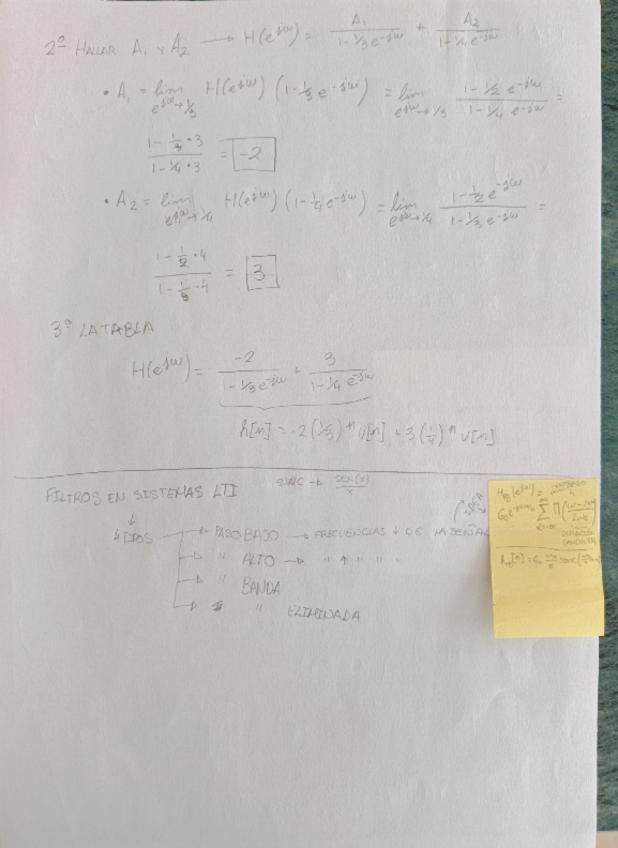 2º HALLAR A₁ Y A₂ → H(e^jω) = A₁/(1-⅓e^-jω) + A₂/(1-¼e^-jω)
• A₁ = lim e^jω→⅓ H(e^jω) (1-⅓e^-jω) = lim e^jω→⅓ (1-½e^-jω)/(1-¼e^-jω) =
(1-½·3)/(1-¼·3) = -2
• A₂ = lim e^jω→¼ H(e^jω) (1-¼e^-jω) = lim e^jω→¼ (1-½e^-jω)/(1-⅓e^-jω) =
(1-½·4)/(1-⅓·4) = 3
3º LA TABLA
H(e^jω) = -2/(1-⅓e^-jω) + 3/(1-¼e^-jω)
h[n] = -2(⅓)^n U[n] + 3(¼)^n U[n]
SINC → SEN(X)/X
FILTROS EN SISTEMAS LTI
↓
4 TIPOS → PASO BAJO → FRECUENCIAS ↓ DE LA SEÑAL
→ " ALTO → " ↑ " " "
→ " BANDA
→ " ELIMINADA